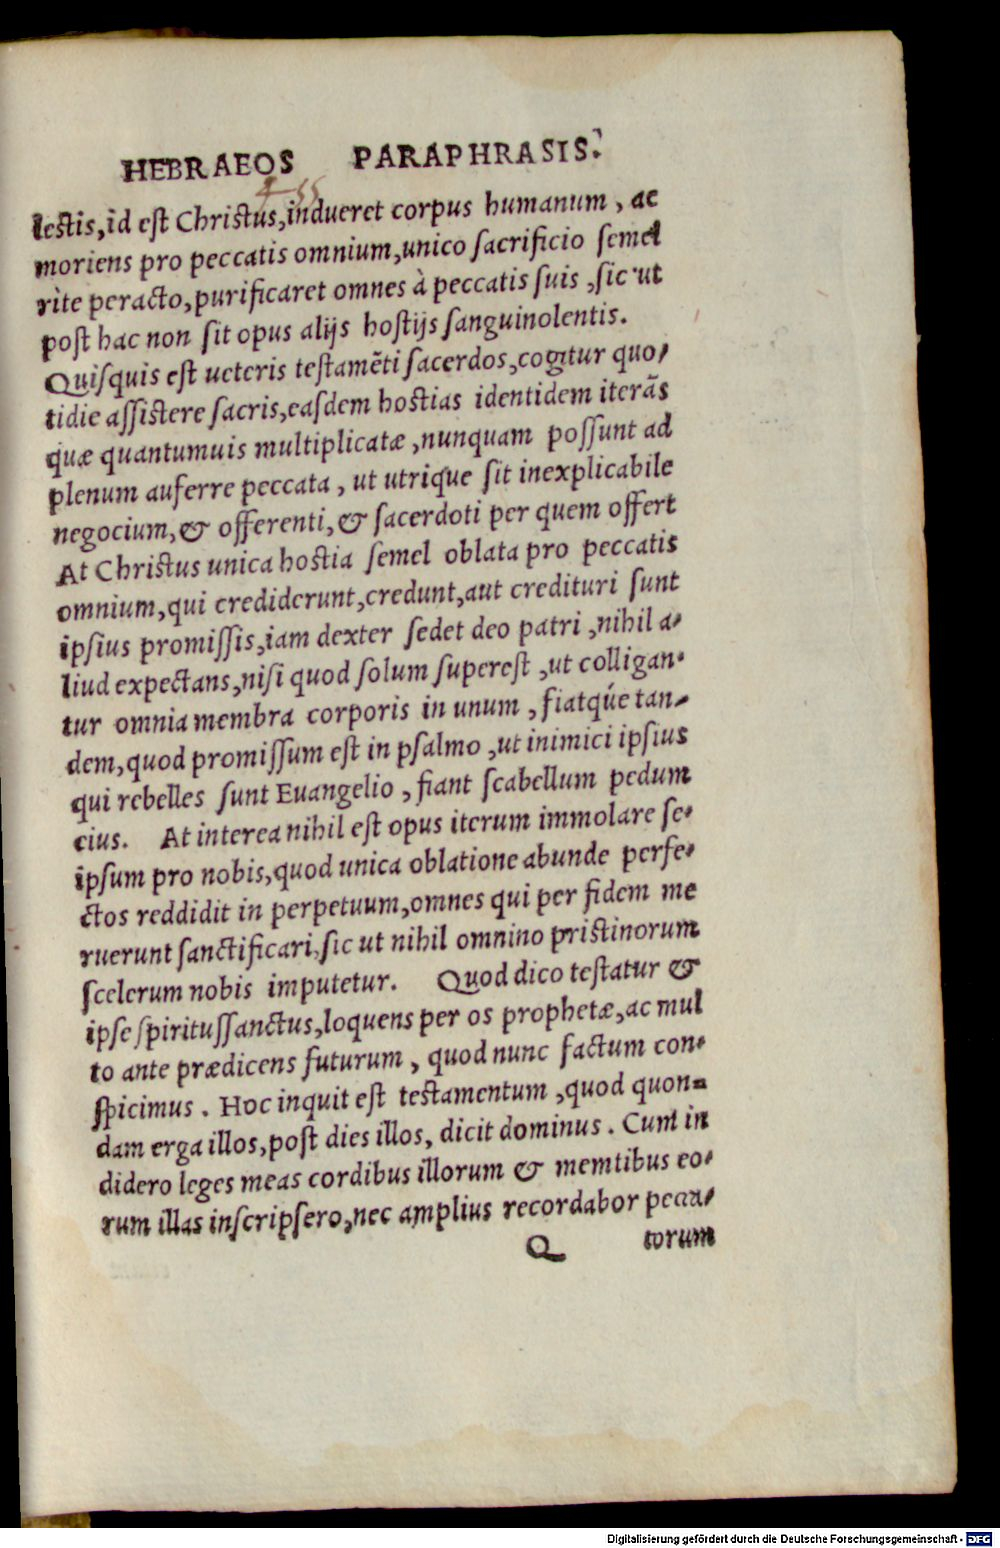 HEBRAEOS PARAPHRASIS.
455
lestis, id est Christus, indueret corpus humanum, ac
moriens pro peccatis omnium, unico sacrificio semel
rìte peracto, purificaret omnes à peccatis suis, sic ut
post hac non sit opus alijs hostijs sanguinolentis.
Quisquis est ueteris testamẽti sacerdos, cogitur quo-
tidie assistere sacris, easdem hostias identidem iterãs
quæ quantumuis multiplicatæ, nunquam possunt ad
plenum auferre peccata, ut utriq́ue sit inexplicabile
negocium, & offerenti, & sacerdoti per quem offert
At Christus unica hostia semel oblata pro peccatis
omnium, qui crediderunt, credunt, aut credituri sunt
ipsius promissis, iam dexter sedet deo patri, nihil a-
liud expectans, nisi quod solum superest, ut colligan-
tur omnia membra corporis in unum, fiatq́ue tan-
dem, quod promissum est in psalmo, ut inimici ipsius
qui rebelles sunt Euangelio, fiant scabellum pedum
eius. At interea nihil est opus iterum immolare se-
ipsum pro nobis, quod unica oblatione abunde perfe-
ctos reddidit in perpetuum, omnes qui per fidem me
ruerunt sanctificari, sic ut nihil omnino pristinorum
scelerum nobis imputetur. Quod dico testatur &
ipse spiritussanctus, loquens per os prophetæ, ac mul
to ante prædicens futurum, quod nunc factum con-
spicimus. Hoc inquit est testamentum, quod quon=
dam erga illos, post dies illos, dicit dominus. Cum in
didero leges meas cordibus illorum & memtibus eo-
rum illas inscripsero, nec amplius recordabor pecca-
Q torum
Digitalisierung gefördert durch die Deutsche Forschungsgemeinschaft - DFG